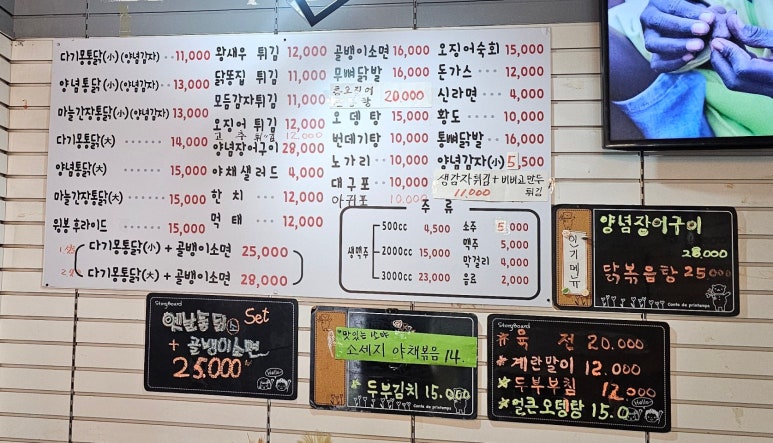 다기몽통닭(小)(양념감자) ‥11,000
양념통닭(小)(양념감자) ‥13,000
마늘간장통닭(小)(양념감자) 13,000
다기몽통닭(大) ‥‥ 14,000
양념통닭(大) ‥‥ 15,000
마늘간장통닭(大) ‥‥ 15,000
윙봉후라이드 ‥‥ 15,000
다기몽통닭(小) + 골뱅이소면 25,000
다기몽통닭(大) + 골뱅이소면 28,000
왕새우 튀김 12,000
닭똥집 튀김 11,000
모듬감자튀김 11,000
오징어 튀김 12,000
고추 튀김 12,000
양념장어구이 28,000
야채샐러드 4,000
한치 ‥ 12,000
먹태 ‥ 12,000
골뱅이소면 16,000
무뼈닭발 16,000
20,000
오뎅탕 15,000
번데기탕 10,000
노가리 ‥ 10,000
대구포 ‥ 10,000
아귀포 10,000
오징어숙회 15,000
돈가스 ‥ 12,000
신라면 ‥ 4,000
황도 ‥ 10,000
통뼈닭발 ‥ 16,000
양념감자(小) 5,500
생감자튀김+비비고만두튀김
11,000
주류
생맥주
500cc 4,500
2000cc 15,000
3000cc 23,000
소주 5,000
맥주 5,000
막걸리 4,000
음료 2,000
인기메뉴
양념장어구이
28,000
닭볶음탕 25,000
Conte de printemps
StoryBoard
옛날통닭 小 Set
+ 골뱅이소면
25.000
Hello~
맛있는
소세지 야채볶음 14.
두부김치 15.000
Conte de printemps
StoryBoard
육전 20.000
계란말이 12.000
두부부침 12,000
얼큰오뎅탕 15.0
Hello~